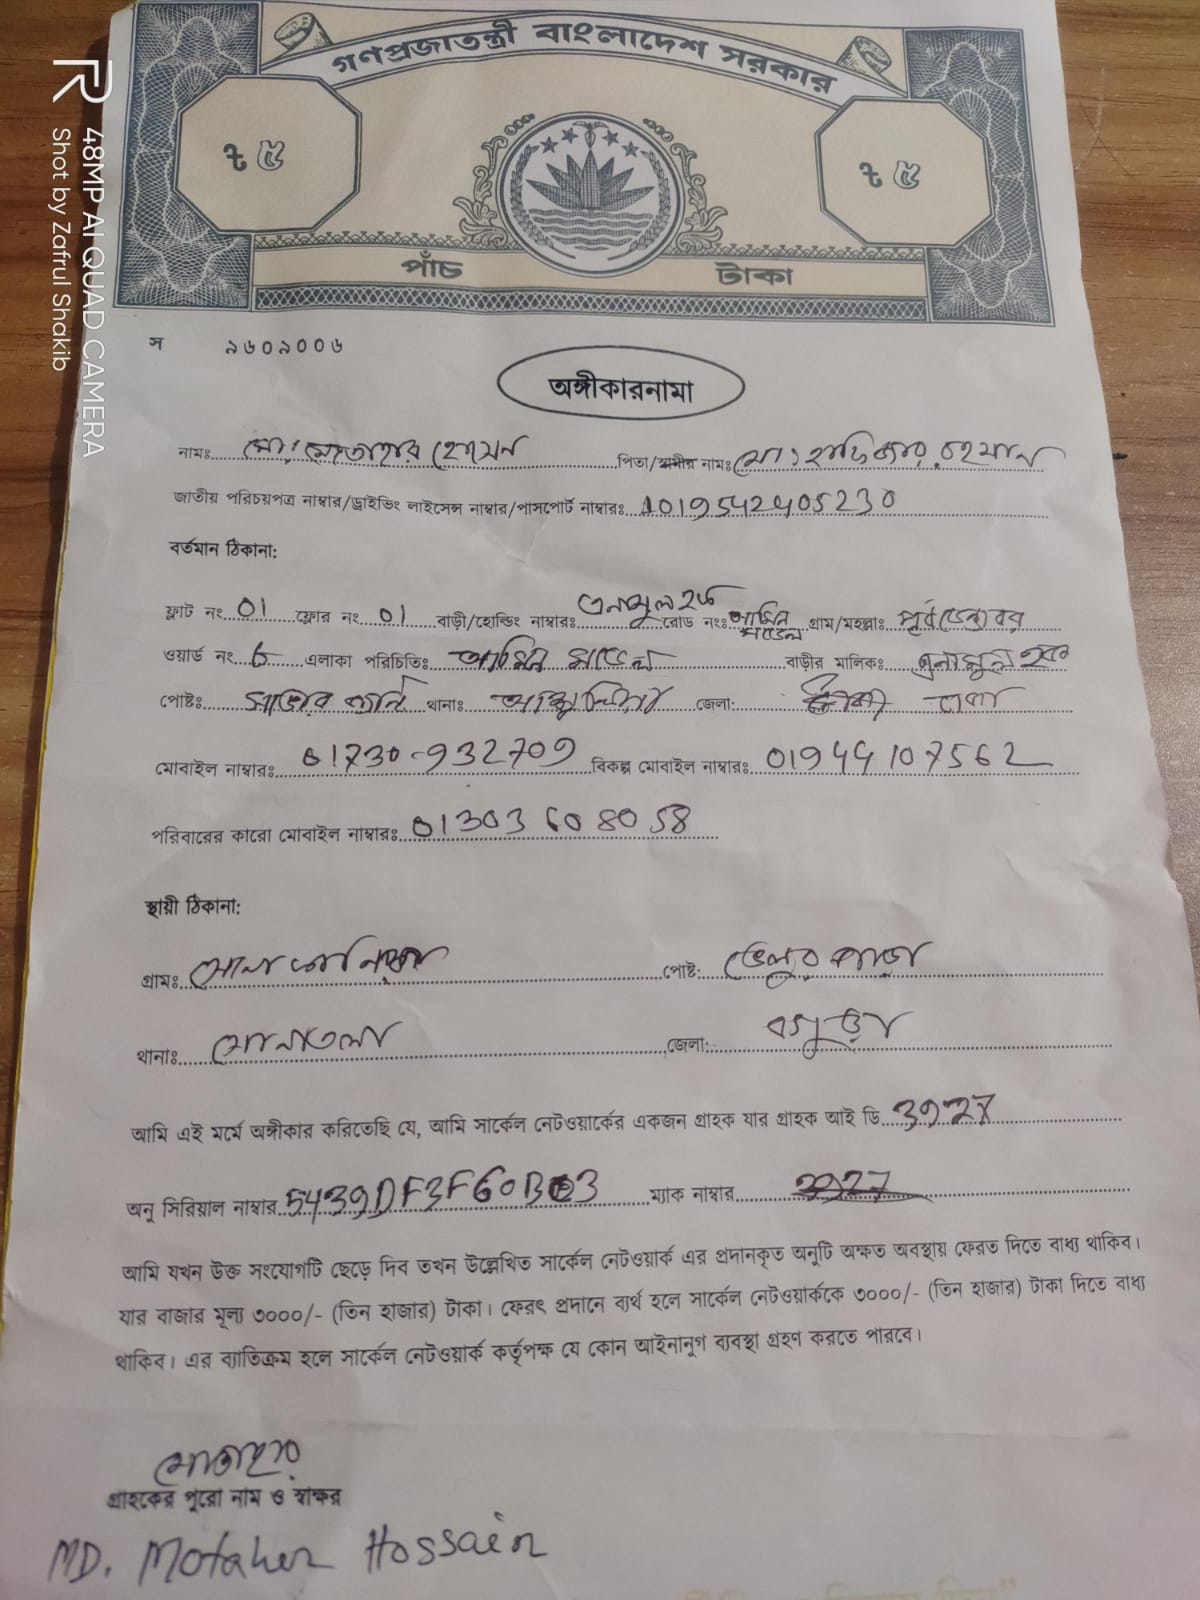 গণপ্রজাতন্ত্রী বাংলাদেশ সরকার
৳ ৫ ৳ ৫
পাঁচ টাকা
স ৯৬০৯০০৬
অঙ্গীকারনামা
নামঃ মো: মোতাহার হোসেন পিতা/স্বামীর নামঃ মো: হাফিজার রহমান
জাতীয় পরিচয়পত্র নাম্বার/ড্রাইভিং লাইসেন্স নাম্বার/পাসপোর্ট নাম্বারঃ 1019542405230
বর্তমান ঠিকানা:
ফ্লাট নং 01 ফ্লোর নং 01 বাড়ী/হোল্ডিং নাম্বারঃ এনামুল হক রোড নংঃ আমিন মডেল গ্রাম/মহল্লাঃ পূর্ব
ওয়ার্ড নং 6 এলাকা পরিচিতিঃ আমিন মডেল বাড়ীর মালিকঃ এনামুল হক
পোষ্টঃ সাভার থানাঃ আশুলিয়া জেলা: ঢাকা
মোবাইল নাম্বারঃ 01730-932709 বিকল্প মোবাইল নাম্বারঃ 01944107562
পরিবারের কারো মোবাইল নাম্বারঃ 01303608058
স্থায়ী ঠিকানা:
গ্রামঃ পোষ্ট: ভেলুর পাড়া
থানাঃ সোনাতলা জেলা: বগুড়া
আমি এই মর্মে অঙ্গীকার করিতেছি যে, আমি সার্কেল নেটওয়ার্কের একজন গ্রাহক যার গ্রাহক আই ডি 3927
অনু সিরিয়াল নাম্বার ম্যাক নাম্বার
আমি যখন উক্ত সংযোগটি ছেড়ে দিব তখন উল্লেখিত সার্কেল নেটওয়ার্ক এর প্রদানকৃত অনুটি অক্ষত অবস্থায় ফেরত দিতে বাধ্য থাকিব।
যার বাজার মূল্য ৩০০০/- (তিন হাজার) টাকা। ফেরৎ প্রদানে ব্যর্থ হলে সার্কেল নেটওয়ার্ককে ৩০০০/- (তিন হাজার) টাকা দিতে বাধ্য
থাকিব। এর ব্যাতিক্রম হলে সার্কেল নেটওয়ার্ক কর্তৃপক্ষ যে কোন আইনানুগ ব্যবস্থা গ্রহণ করতে পারবে।
মোতাহার
গ্রাহকের পুরো নাম ও স্বাক্ষর
MD. Motaher Hossain
48MP AI QUAD CAMERA
Shot by Zafrul Shakib